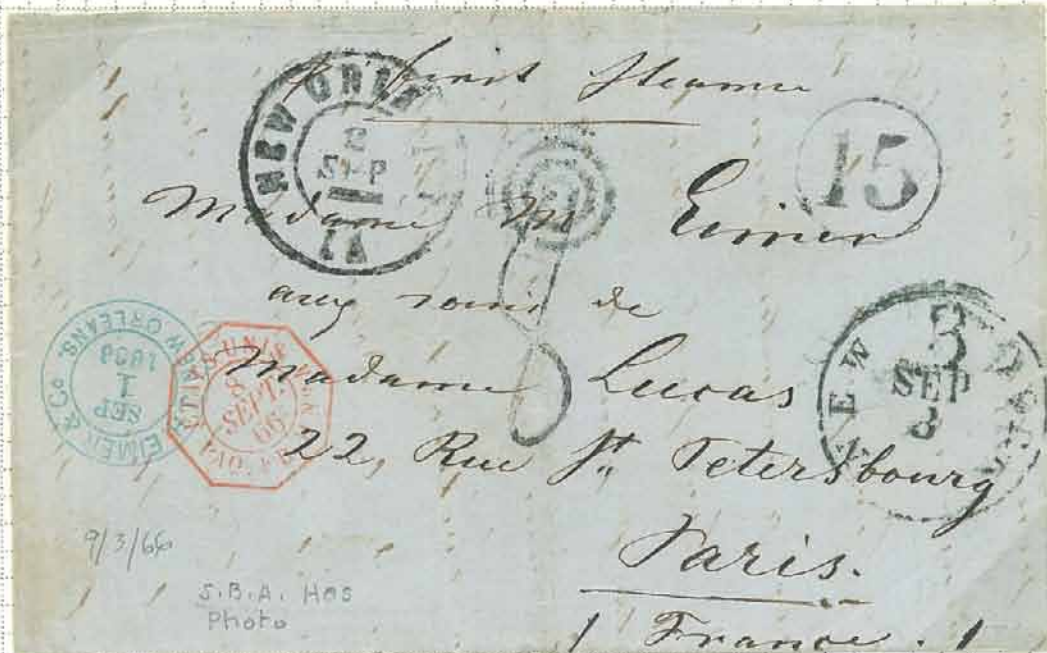 Steamer
NEW ORLE
2
SEP
LA
15
Madame M Eimer
aux soins de
Madame Lucas
22, Rue St. Petersbourg
Paris.
France.
8
NEW
3
SEP
3
EIMER & Co. NEW ORLEANS.
1
SEP
ETATS-UNIS
8
SEPT.
66
9/3/66
S.B.A. HAS
Photo